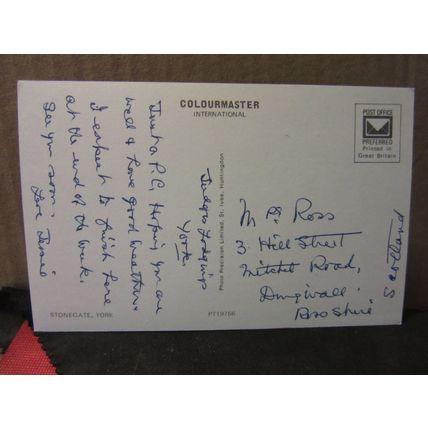 COLOURMASTER
INTERNATIONAL
POST OFFICE
PREFERRED
Printed in
Great Britain
Judges Lodgings
York.
Just a P.C. Hoping you are
well & have good weather.
I expect to finish here
at the end of the week.
See you soon.
Love Jessie
Photo Precision Limited, St. Ives, Huntingdon
Ross
3 Hill Street
Mitchel Road,
Dingwall.
Ross Shire
Scotland
STONEGATE, YORK
PT19756